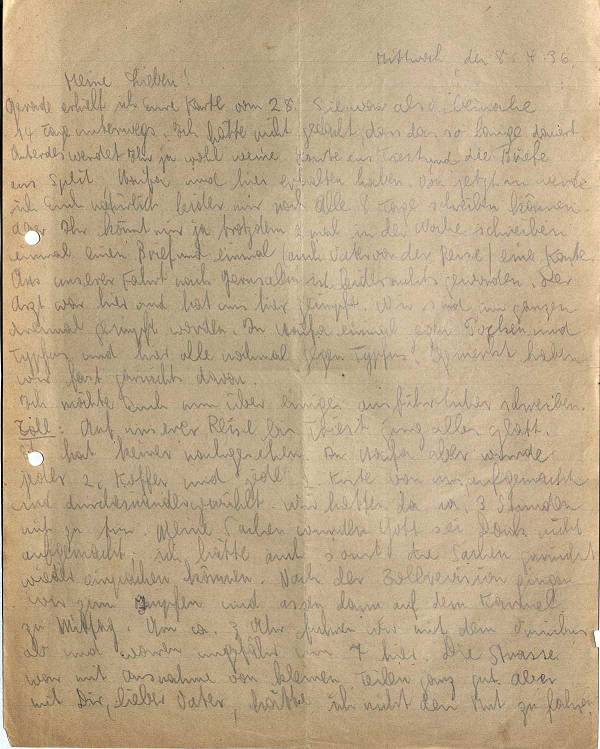 Mittwoch, den 8.4.36.
Meine Lieben!
Gerade erhielt ich Eure Karte vom 28. Sie war also beinahe
14 Tage unterwegs. Ich hätte nicht gedacht, dass das so lange dauert.
Unterdes werdet Ihr ja wohl meine Karte aus Triest und die Briefe
aus Split, Haifa und hier erhalten haben. Von jetzt an werde
ich Euch natürlich leider nur noch alle 8 Tage schreiben können.
Aber Ihr könnt mir ja trotzdem 2 mal in der Woche schreiben
einmal einen Brief und einmal (auch Vater von der Reise) eine Karte.
Aus unserer Fahrt nach Jerusalem ist nichts geworden. Der
Arzt war hier und hat uns hier geimpft. Wir sind im ganzen
dreimal geimpft worden. In Haifa einmal gegen Pocken und
Typhus und hier alle nochmal gegen Typhus. Gemerkt haben
wir fast garnichts davon.
Ich möchte Euch nun über einiges ausführlicher schreiben.
Zoll: Auf unserer Reise bis Triest ging alles glatt.
Es hat keiner nachgesehen. In Haifa aber wurde
jeder 2. Koffer und jede Kiste von uns aufgemacht
und durcheinandergewühlt. Wir hatten da ca. 3 Stunden
mit zu tun. Meine Sachen wurden Gott sei Dank nicht
aufgemacht, ich hätte auch sonst die Sachen garnicht
wieder einpacken können. Nach der Zollrevision gingen
wir zum Impfen und assen dann auf dem Karmel
zu Mittag. Um ca. 3 Uhr fuhren wir mit dem Omnibus
ab und waren ungefähr um 7 hier. Die Strasse
war mit Ausnahme von kleinen Teilen ganz gut, aber
mit Dir, lieber Vater, hätte ich nicht den Mut zu fahren